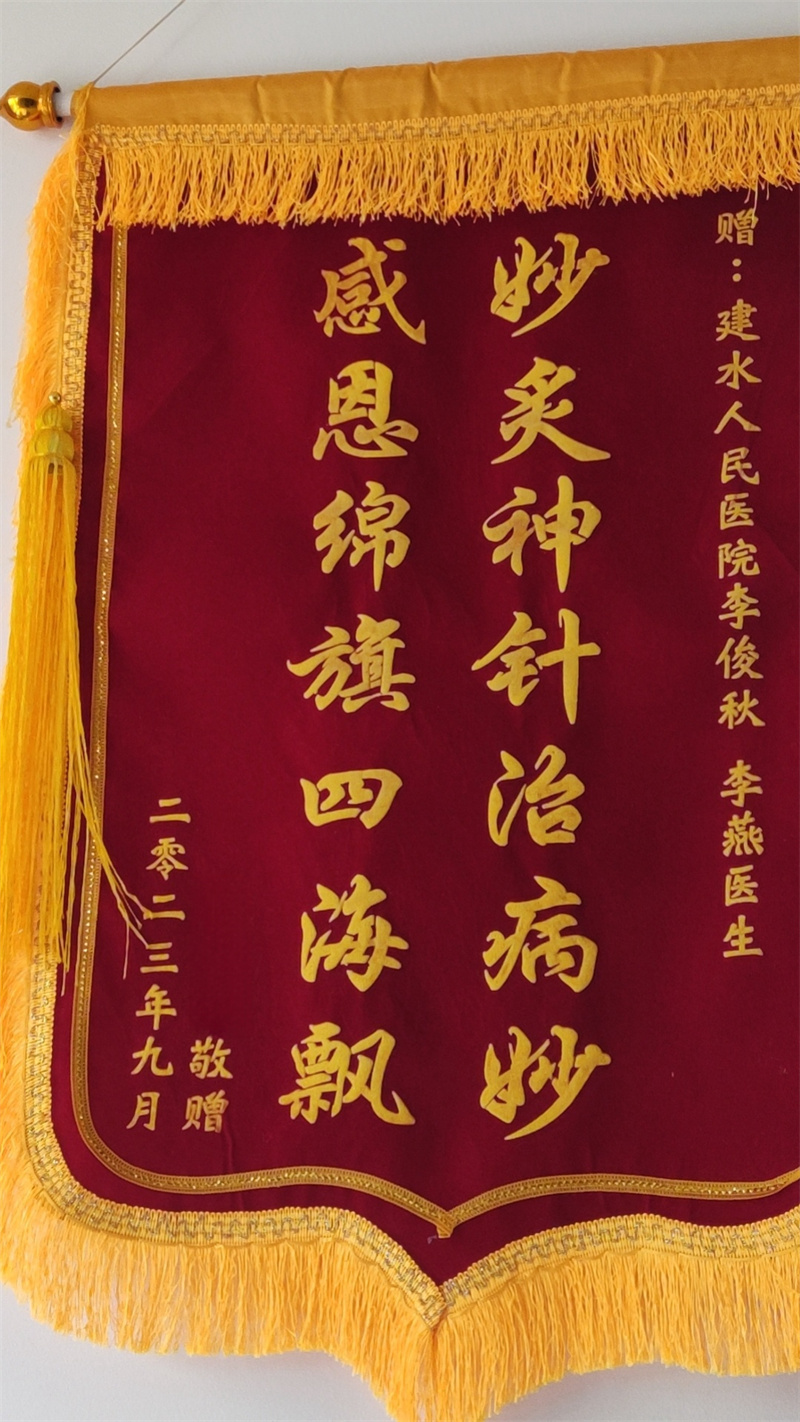 赠：建水人民医院李俊秋 李燕医生
妙炙神针治病妙
感恩绵旗四海飘
敬赠
二零二三年九月